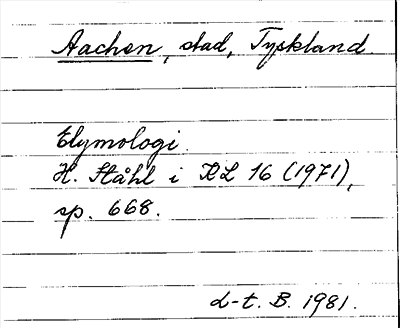 Aachen, stad, Tyskland.
Etymologi.
H. Ståhl i RL 16 (1971),
sp. 668.
L-t. B. 1981.